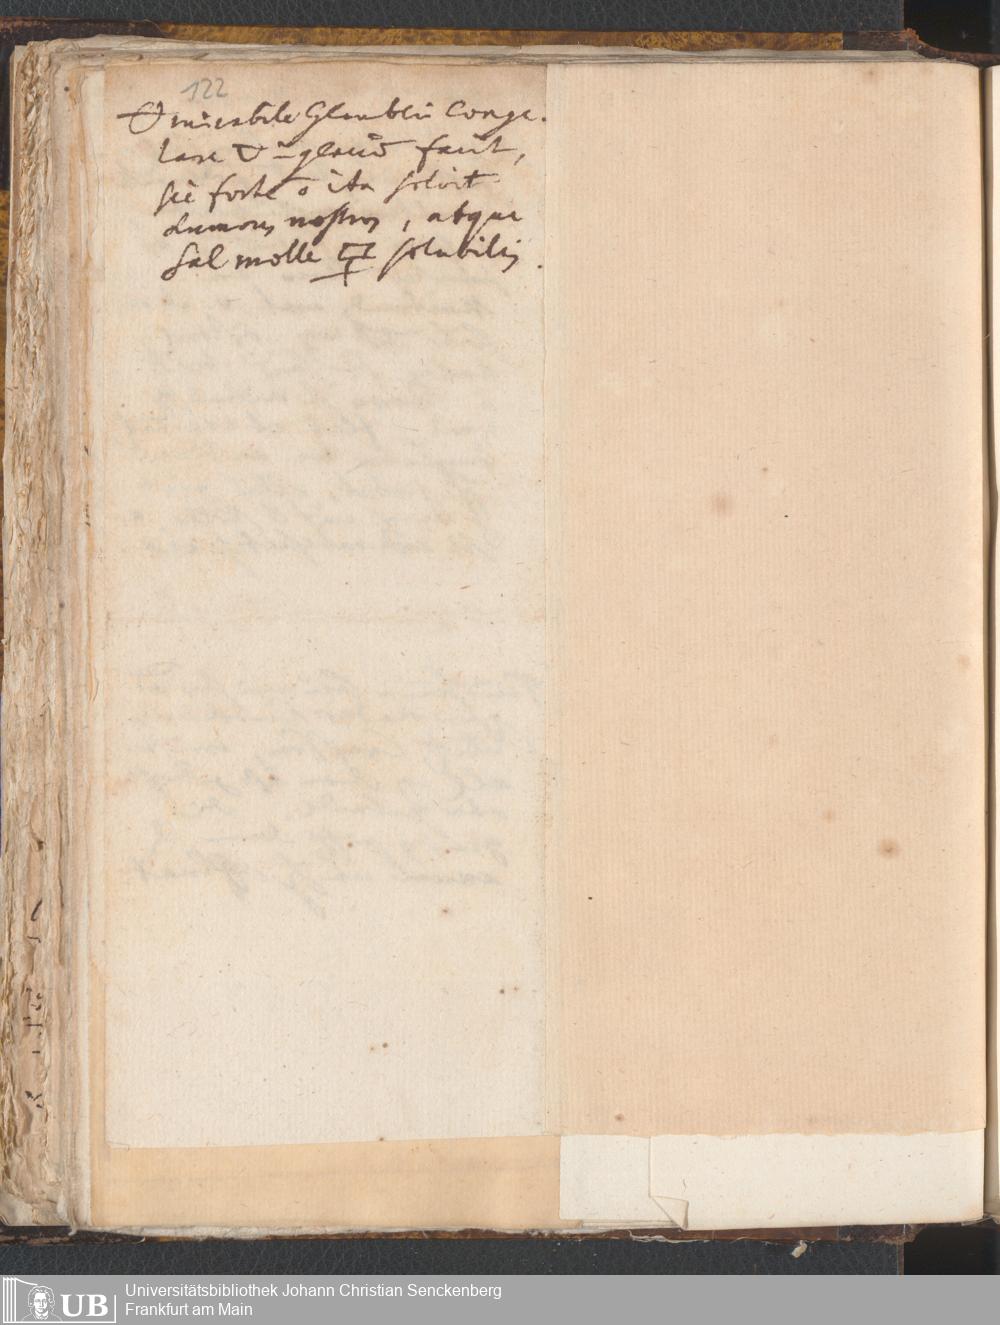 122
🜔 mirabile Glauberi conge-
lare 🜄 in glaciē facit,
sic forte ō ita solvit
humores nostros, atque
sal molle 🜿 solubilis.
UB
Universitätsbibliothek Johann Christian Senckenberg
Frankfurt am Main